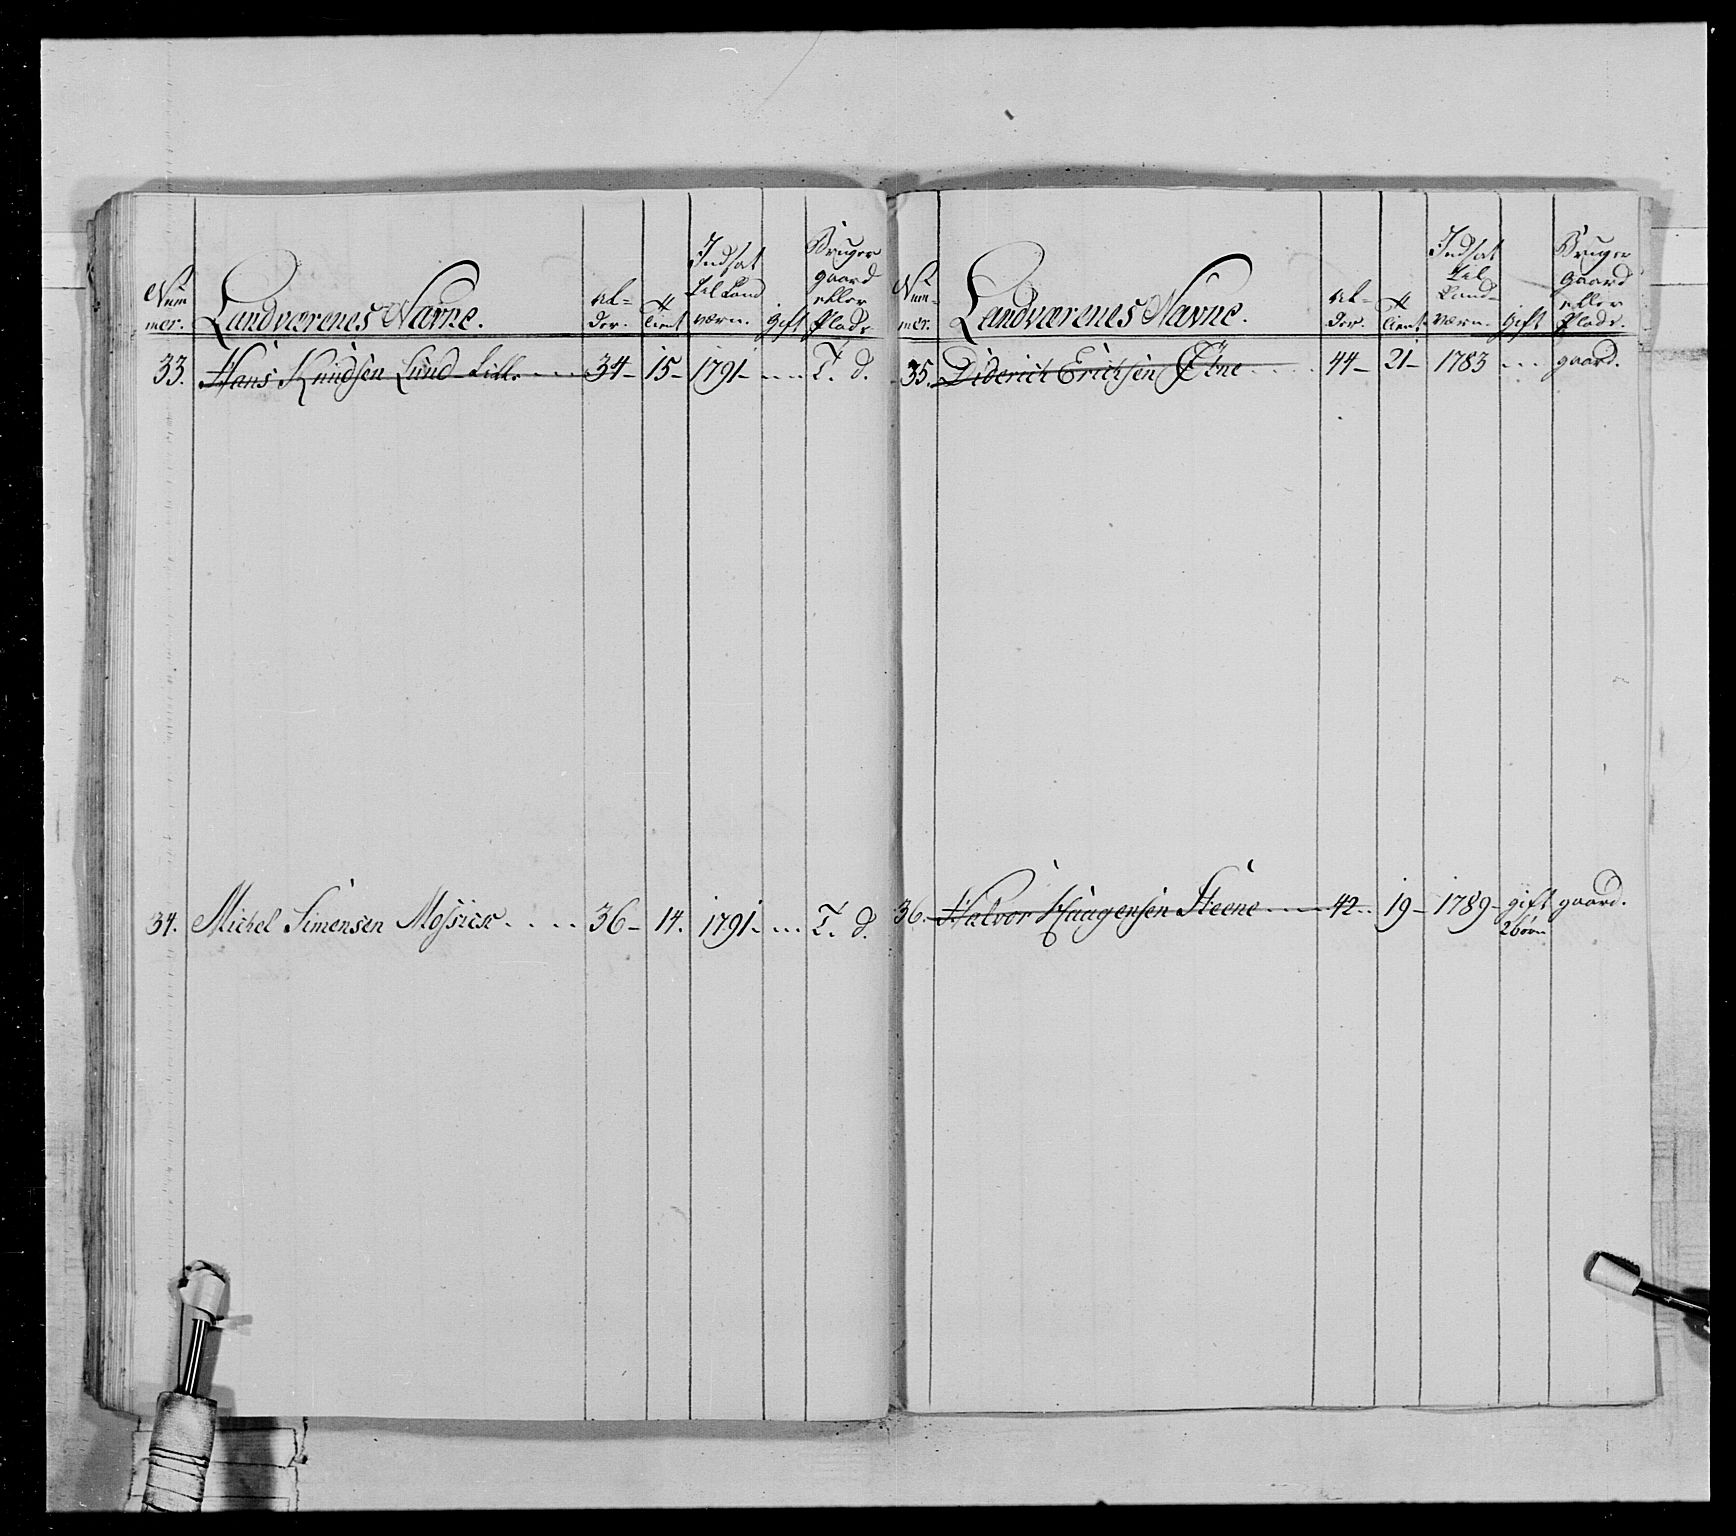 Num
mer.
Landværenes Navne.
Al-
der.
Tient
Indsat
til Land
værn.
gift
Bruger
gaard
eller
Plads
33. Hans Knudsen Lund Lille 34 15 1791 T. d.
34. Michel Simensen 36 14. 1791 T. d.
Num-
mer.
Landværenes Navne.
Al-
der.
Tient
Indsat
til
Land-
værn.
gift
Bruger
gaard
eller
Plads.
35. Diderich Erichsen 44 21 1783 gaard.
36. Halvor Haagensen Steene 42 19 1789 gift gaard.
2 børn